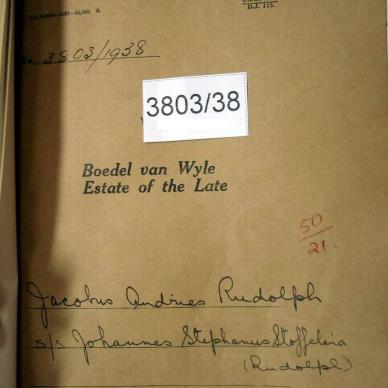 D.J. 115.
No. 3803/1938
3803/38
Boedel van Wyle
Estate of the Late
50
21.
Jacobus Andries Rudolph
s/s Johannes Stephanus Stoffelina
(Rudolph)